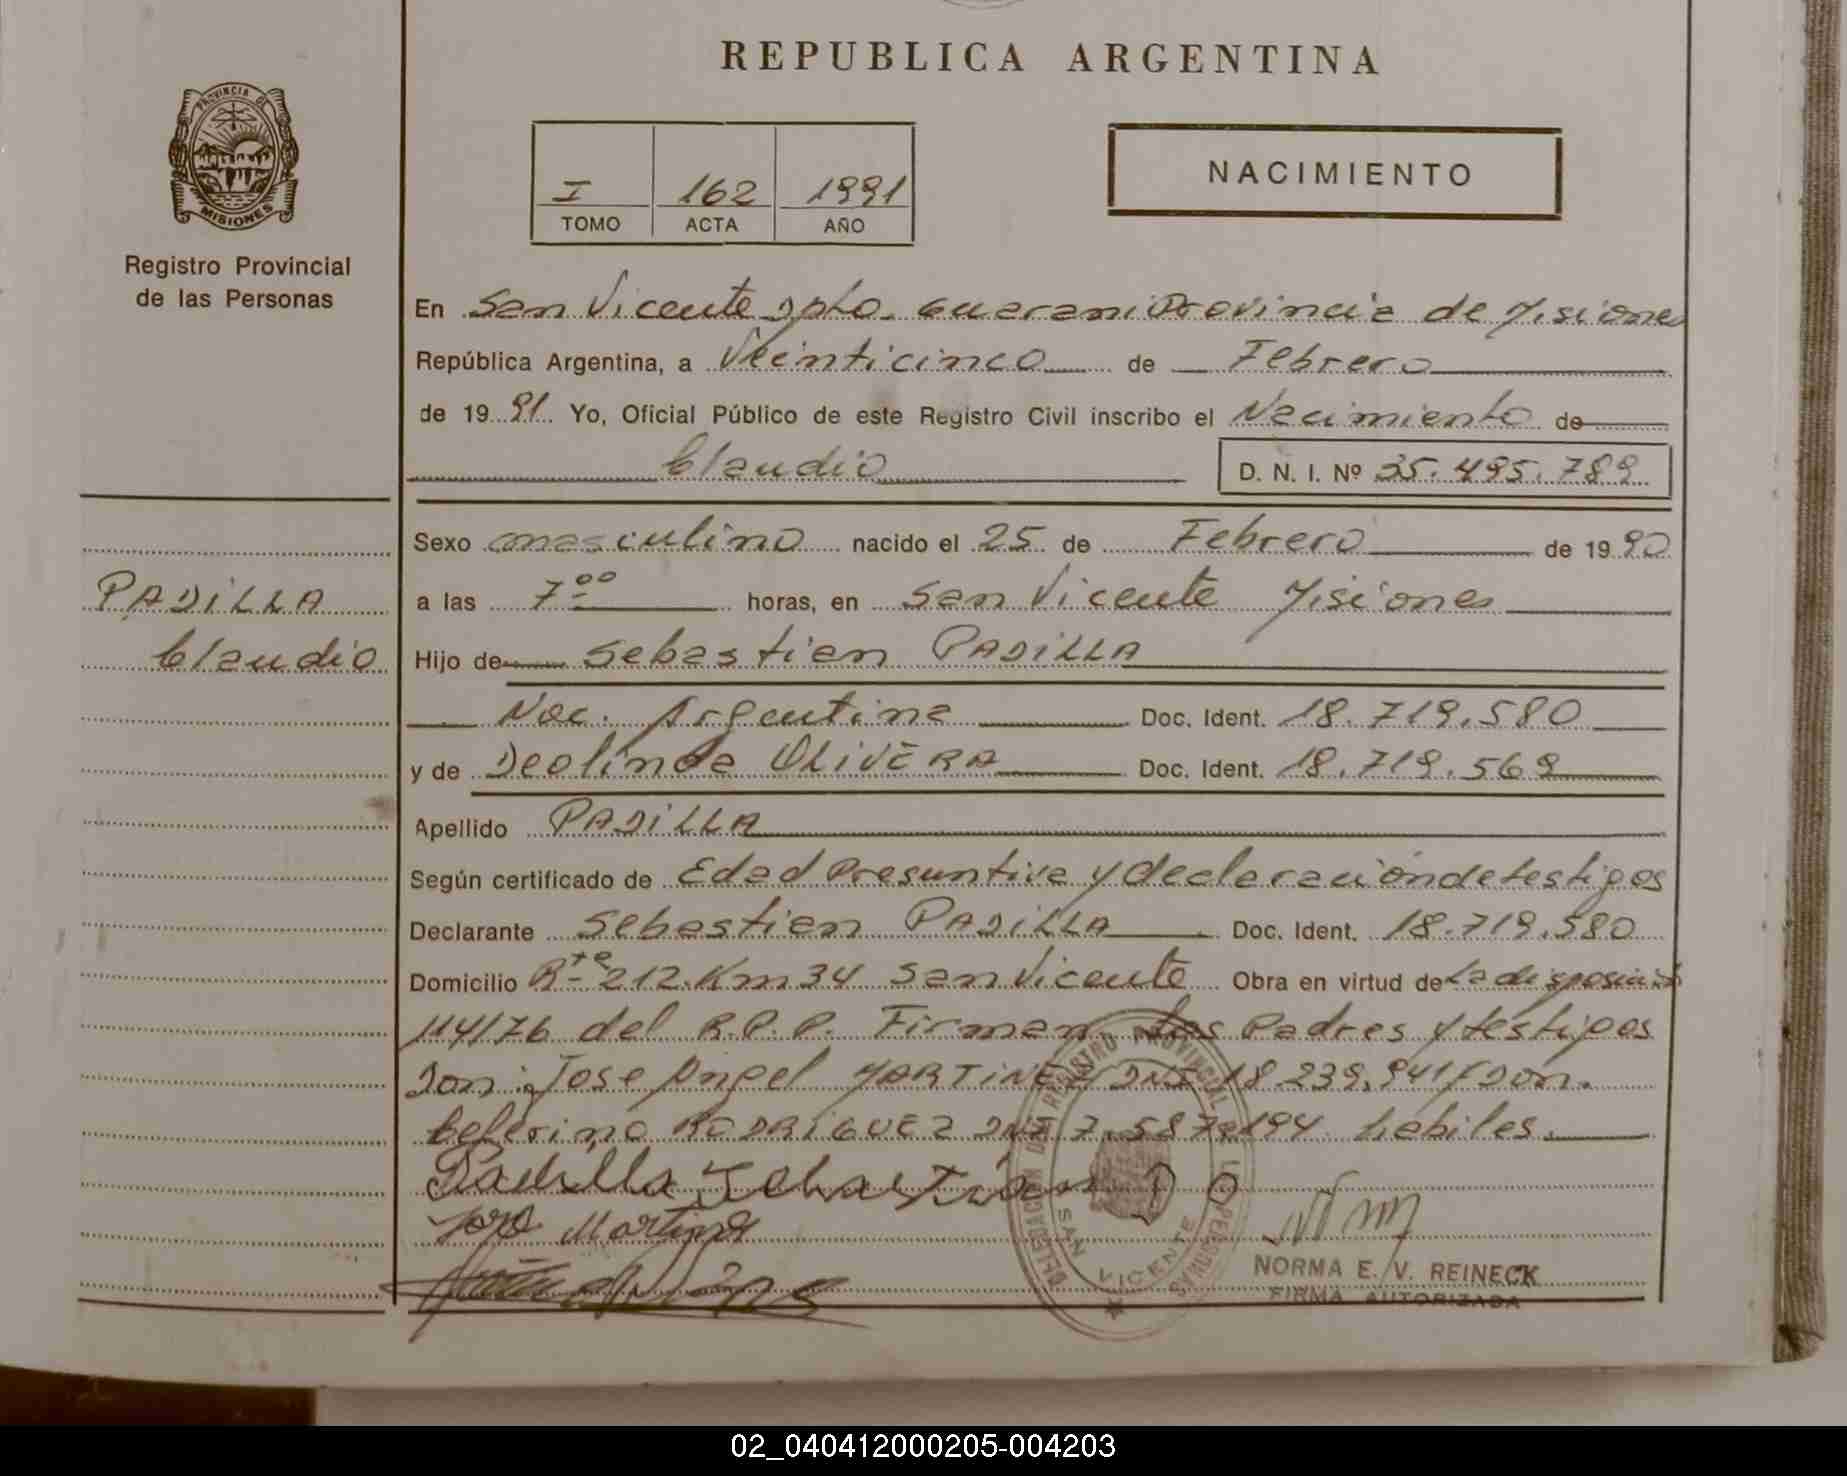 REPUBLICA ARGENTINA
PROVINCIA DE
MISIONES
Registro Provincial
de las Personas
I 162 1991
TOMO ACTA AÑO
NACIMIENTO
En San Vicente Dpto. Guarani Provincia de Misiones
República Argentina, a Veinticinco de Febrero
de 19 91 Yo, Oficial Público de este Registro Civil inscribo el Nacimiento de
Claudio D. N. I. Nº 35.495.789
PADILLA
Claudio
Sexo masculino nacido el 25 de Febrero de 19 90
a las 7 00 horas, en San Vicente Misiones
Hijo de Sebastian PADILLA
Nac. Argentina Doc. Ident. 18.719.580
y de Deolinda OLIVERA Doc. Ident. 18.719.569
Apellido PADILLA
Según certificado de Edad Presuntiva y declaración de testigos
Declarante Sebastian PADILLA Doc. Ident. 18.719.580
Domicilio Rte 212. Km 34 San Vicente Obra en virtud de La disposición
114/76 del R.P.P. Firman Los Padres y testigos
Don: Jose Angel MARTINEZ DNI 18.239.941 y Don.
Ceferino RODRIGUEZ DNI 7.587.194 habiles.
Padilla Sebastián D O
Jose Martinez
DELEGACION DEL REGISTRO PROVINCIAL DE LAS PERSONAS
SAN VICENTE
NORMA E. V. REINECK
FIRMA AUTORIZADA
02_040412000205-004203